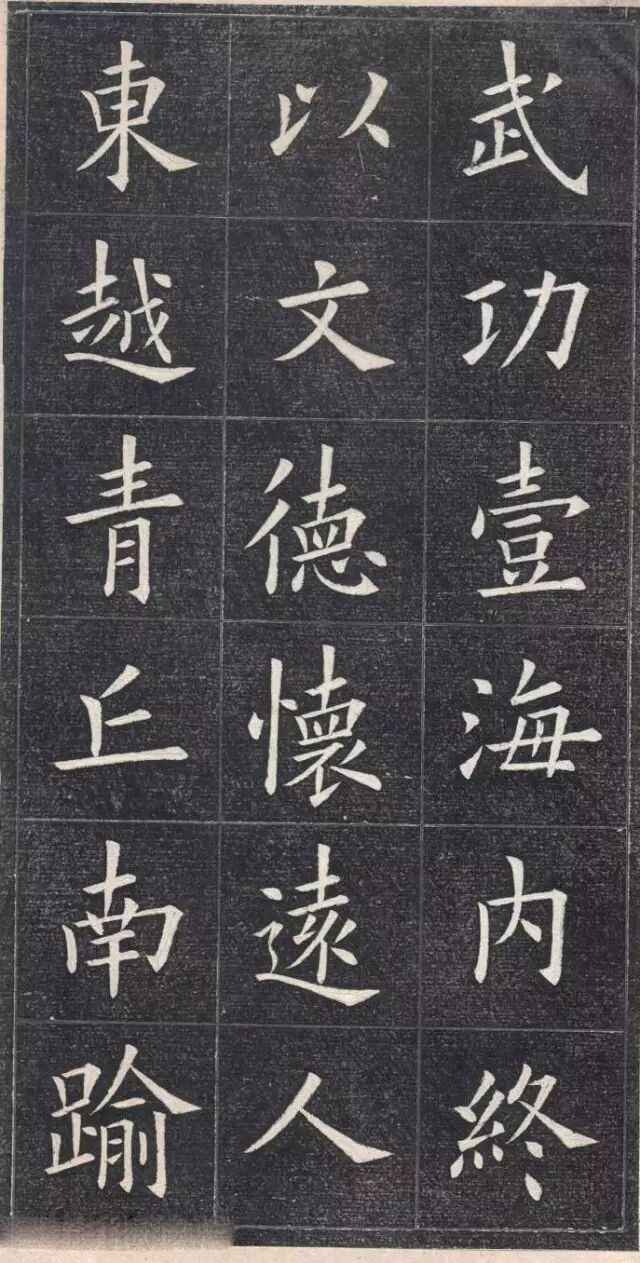 武功壹海内終
以文德懷遠人
東越青丘南踰